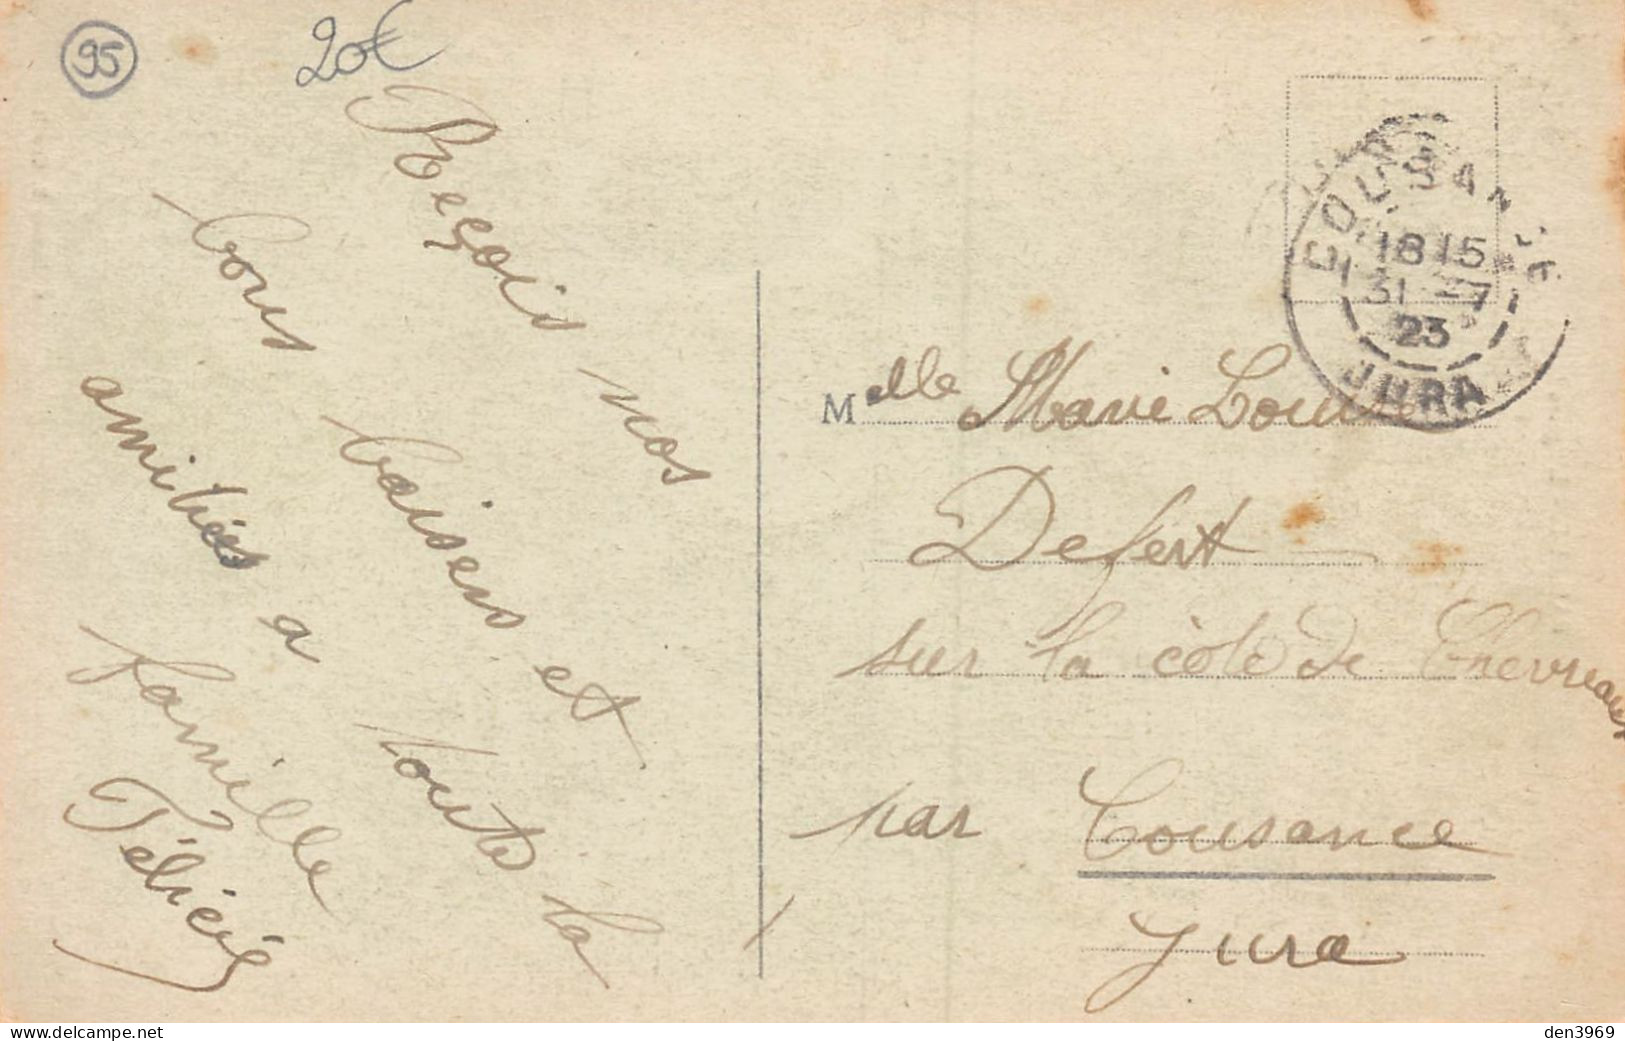 95
20€
Reçois nos
bons baisers et
amitiés a toute la
famille
Félicie
COUSANCE
18 15
31 - 7
23
JURA
Melle Marie Louise
Defert
sur la côte de Chevreaux
par Cousance
Jura
www.delcampe.net
den3969